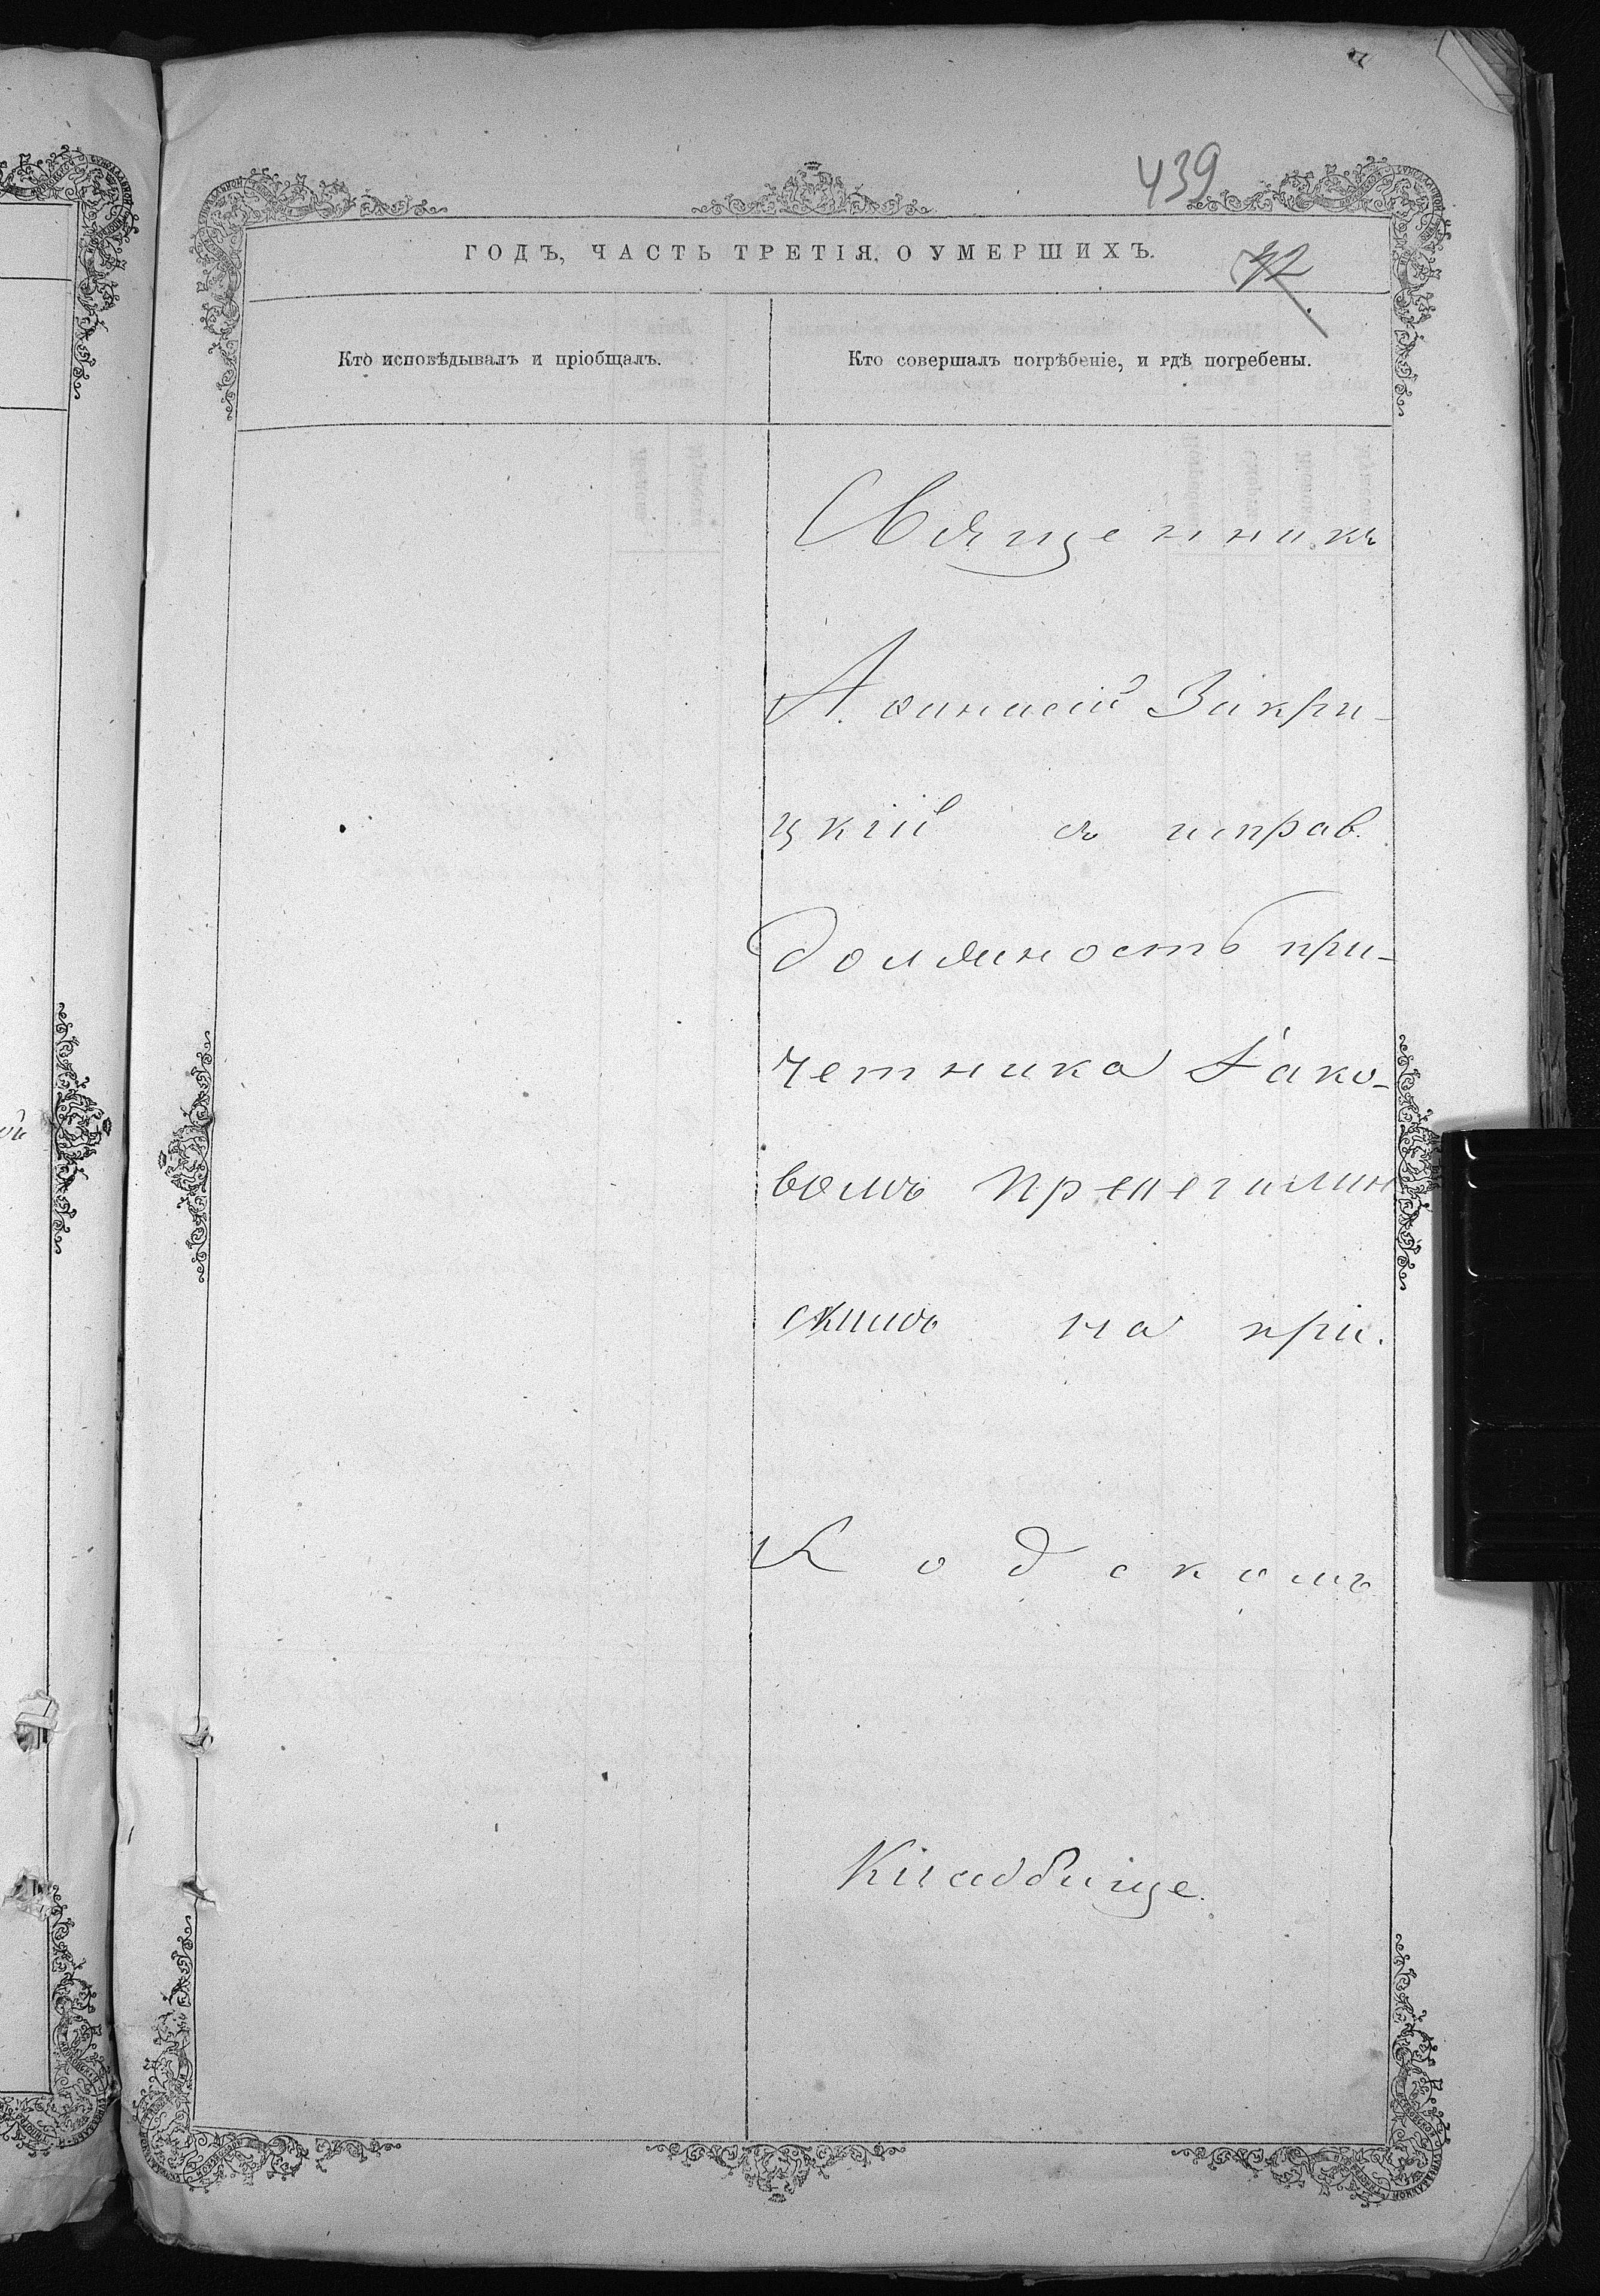 439
ГОДЪ, ЧАСТЬ ТРЕТІЯ, О УМЕРШИХЪ.
42
Кто исповѣдывалъ и пріобщалъ.
Кто совершалъ погрѣбеніе, и гдѣ погребены.
Священникъ
Аѳанасій Закри-
цкій съ исправ.
должность при-
четника Іако-
вомъ
скимъ на при.
кладбище.